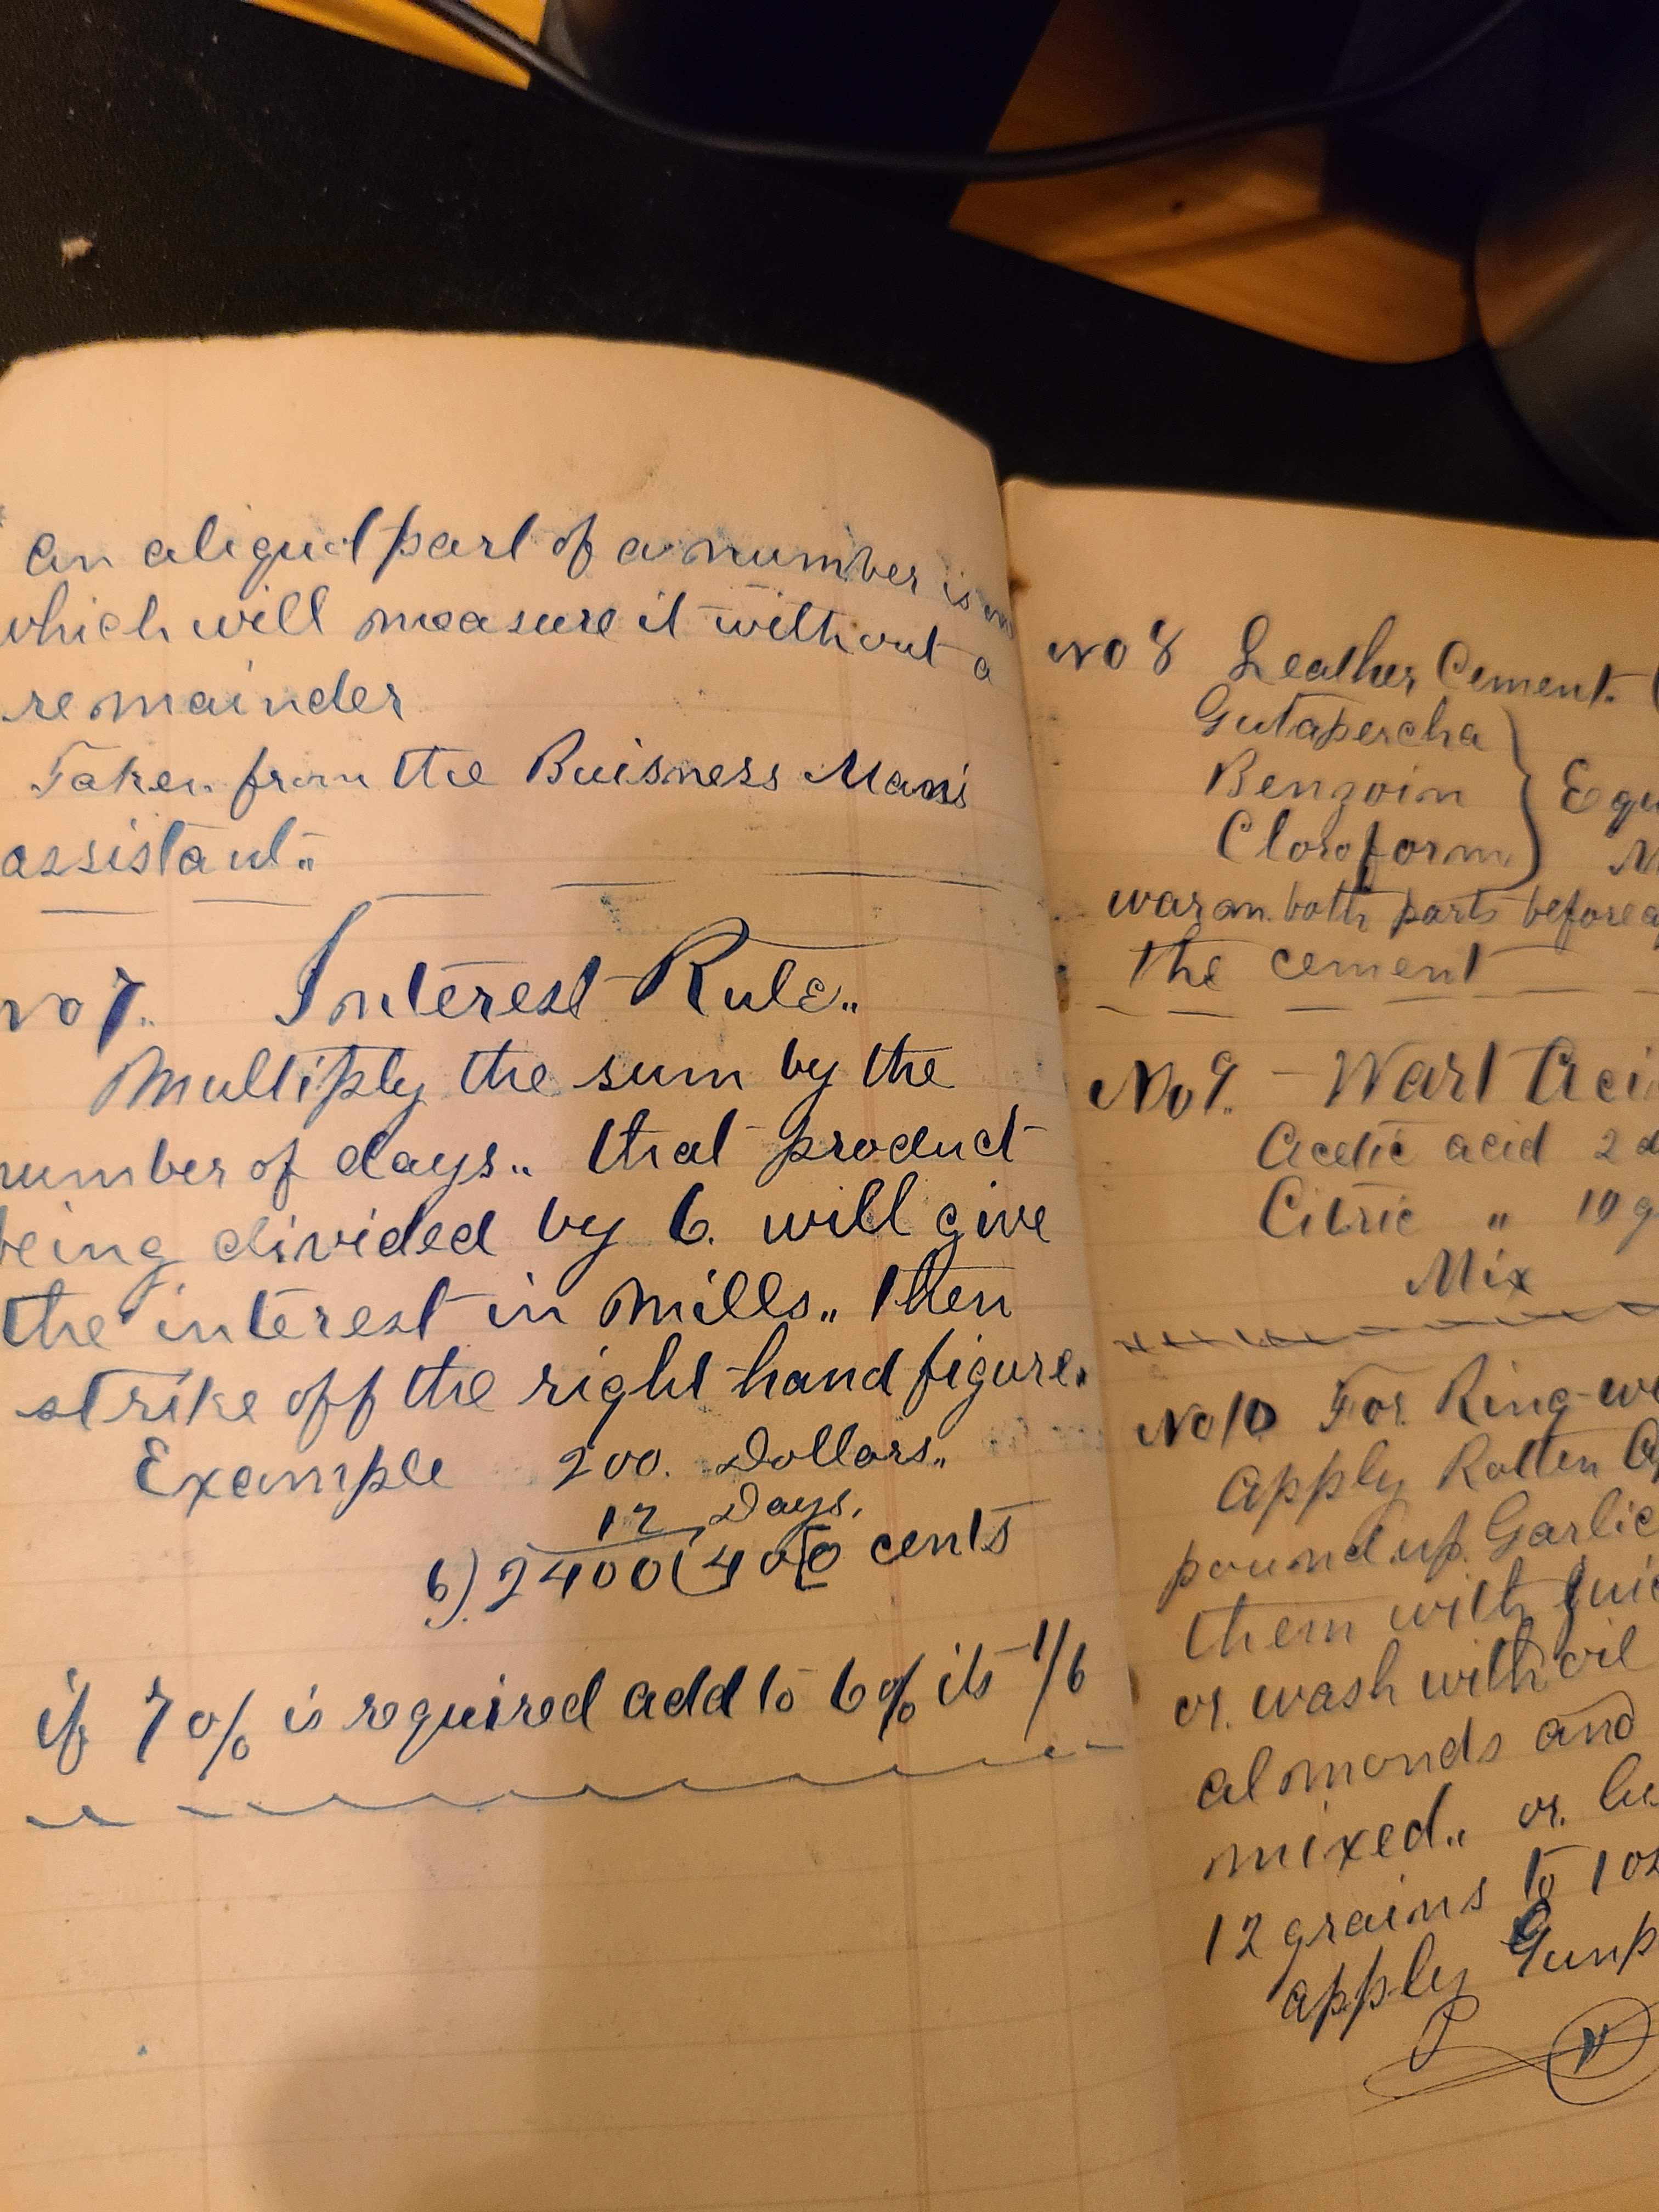 an aliquot part of a number is
which will measure it without a
remainder
Taken from the Buisness Mans
assistant„
No 7„ Interest Rule„
Multiply the sum by the
number of days„ that product
being divided by 6. will give
the interest in Mills„ then
strike off the right hand figure.
Example 200. Dollars„
12 Days.
6) 2400 (40[0 cents
if 7 o/o is required add to 6 o/o its 1/6
No 8 Leather Cement.
Gutapercha
Benzoin
Cloroform
warm both parts before
the cement
No 9„ - Wart
Acetic acid 2
Citric „ 10
Mix
No 10 For Ring-
Apply Rotten
pound up Garlic
them with
or. wash with oil
almonds and
mixed„ or.
12 grains to 1
apply